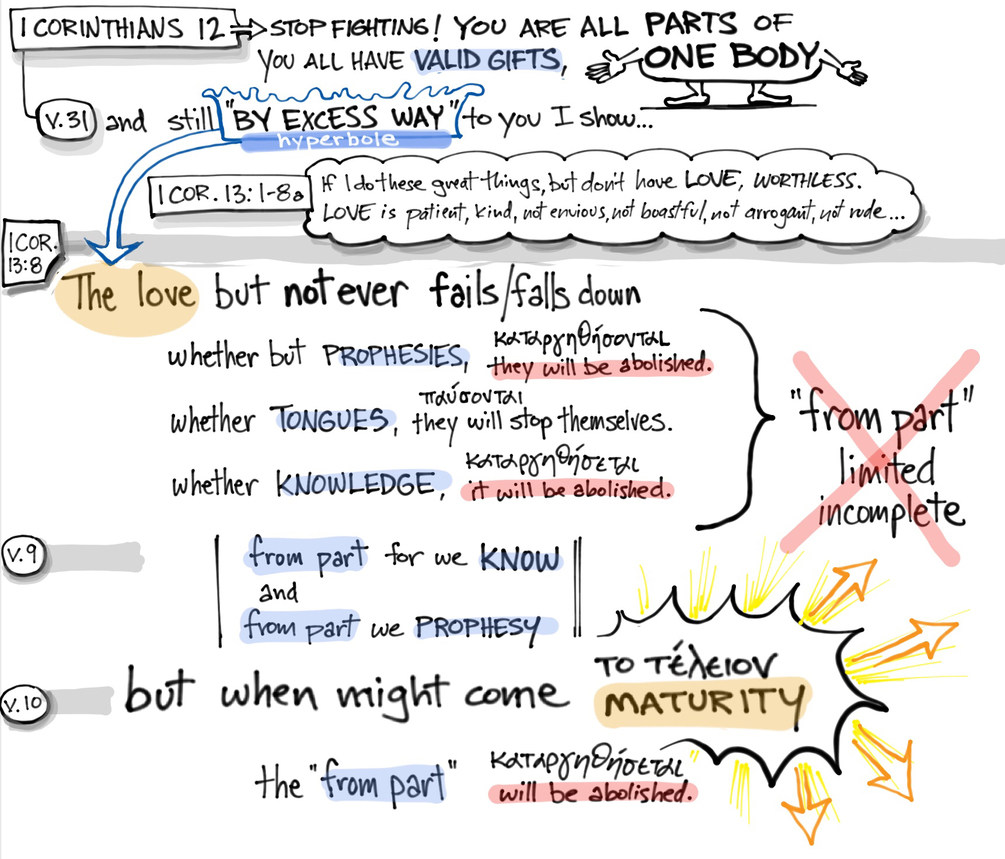 1 CORINTHIANS 12 STOP FIGHTING! YOU ARE ALL PARTS OF
YOU ALL HAVE VALID GIFTS, ONE BODY
v.31 and still "BY EXCESS WAY" to you I show...
hyperbole
1 COR. 13:1-8a
If I do these great things, but don't have LOVE, WORTHLESS.
LOVE is patient, kind, not envious, not boastful, not arrogant, not rude...
1 COR.
13:8
The love but not ever fails/falls down
καταργηθήσονται
whether but PROPHESIES, they will be abolished.
παύσονται
whether TONGUES, they will stop themselves.
καταργηθήσεται
whether KNOWLEDGE, it will be abolished.
"from part"
limited
incomplete
v.9
from part for we KNOW
and
from part we PROPHESY
v.10
but when might come το τέλειον
MATURITY
καταργηθήσεται
the "from part" will be abolished.